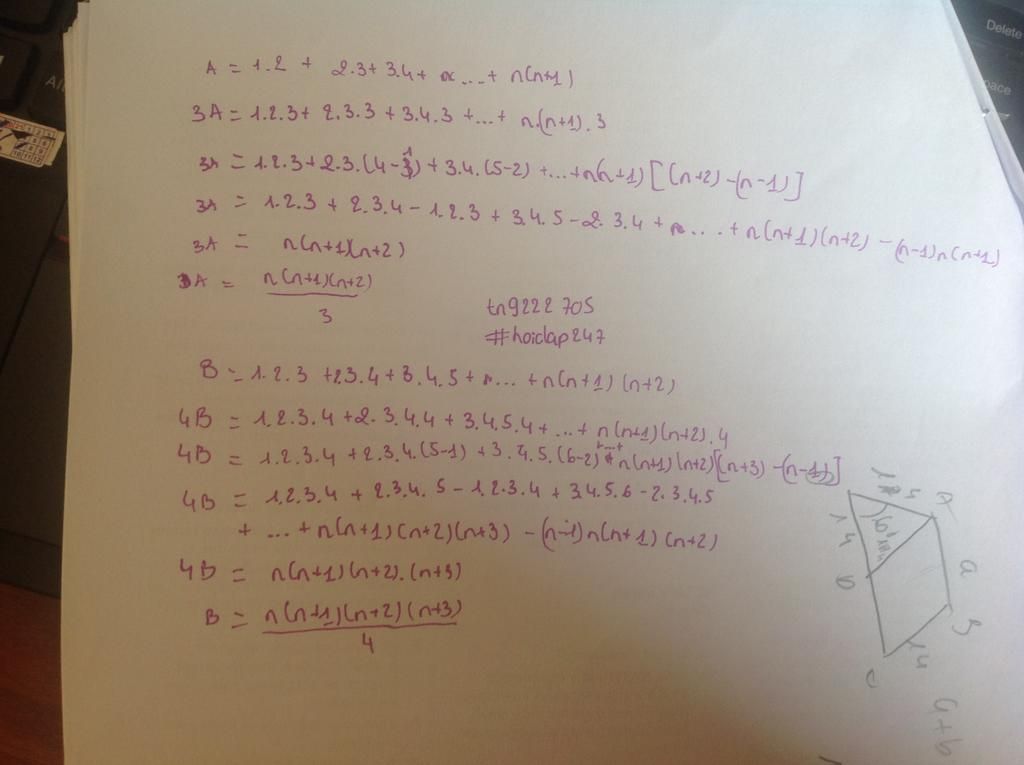 A = 1.2 + 2.3 + 3.4 + ... + n(n+1)
3A = 1.2.3 + 2.3.3 + 3.4.3 + ... + n.(n+1).3
3A = 1.2.3 + 2.3.(4-1) + 3.4.(5-2) + ... + n(n+1)[(n+2) - (n-1)]
3A = 1.2.3 + 2.3.4 - 1.2.3 + 3.4.5 - 2.3.4 + ... + n(n+1)(n+2) - (n-1)n(n+1)
3A = n(n+1)(n+2)
3A = n(n+1)(n+2)
3
tn9222 705
#hoidap247
B = 1.2.3 + 2.3.4 + 3.4.5 + ... + n(n+1)(n+2)
4B = 1.2.3.4 + 2.3.4.4 + 3.4.5.4 + ... + n(n+1)(n+2).4
4B = 1.2.3.4 + 2.3.4.(5-1) + 3.4.5.(6-2) + ... + n(n+1)(n+2)[(n+3) - (n-1)]
4B = 1.2.3.4 + 2.3.4.5 - 1.2.3.4 + 3.4.5.6 - 2.3.4.5
+ ... + n(n+1)(n+2)(n+3) - (n-1)n(n+1)(n+2)
4B = n(n+1)(n+2).(n+3)
B = n(n+1)(n+2)(n+3)
4
A
14
a
B
14
C
a+b
Delete